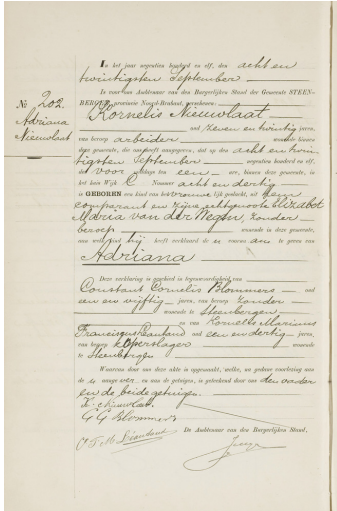 In het jaar negentien honderd en elf, den acht en
twintigsten September
is voor ons Ambtenaar van den Burgerlijken Stand der Gemeente STEEN-
BERGEN, provincie Noord-Brabant, verschenen:
No 202.
Adriana
Nieuwlaat
Kornelis Nieuwlaat
oud zeven en twintig jaren,
van beroep arbeider wonende binnen
deze gemeente, die ons heeft aangegeven, dat op den acht en twin
tigsten September negentien honderd en elf,
des voor middags ten een ure, binnen deze gemeente, in
het huis Wijk C Nummer acht en dertig
is GEBOREN een kind van het vrouwelijk geslacht, uit hem
comparant en zijne echtgenoote Elizabet
Maria van der Wegen, zonder
beroep wonende in deze gemeente,
aan welk kind hij heeft verklaard de voornaam te geven van
Adriana
Deze verklaring is geschied in tegenwoordigheid van
Constant Cornelis Blommers oud
een en vijftig jaren, van beroep zonder
wonende te Steenbergen
en van Kornelis Marinus
Franciscus oud een en dertig jaren,
van beroep koperslager wonende
te Steenbergen
Waarvan door ons deze akte is opgemaakt, welke, na gedane voorlezing aan
de aangever en aan de getuigen, is geteekend door ons den vader
en de beide getuigen.
Nieuwlaat
Blommers
De Ambtenaar van den Burgerlijken Stand,